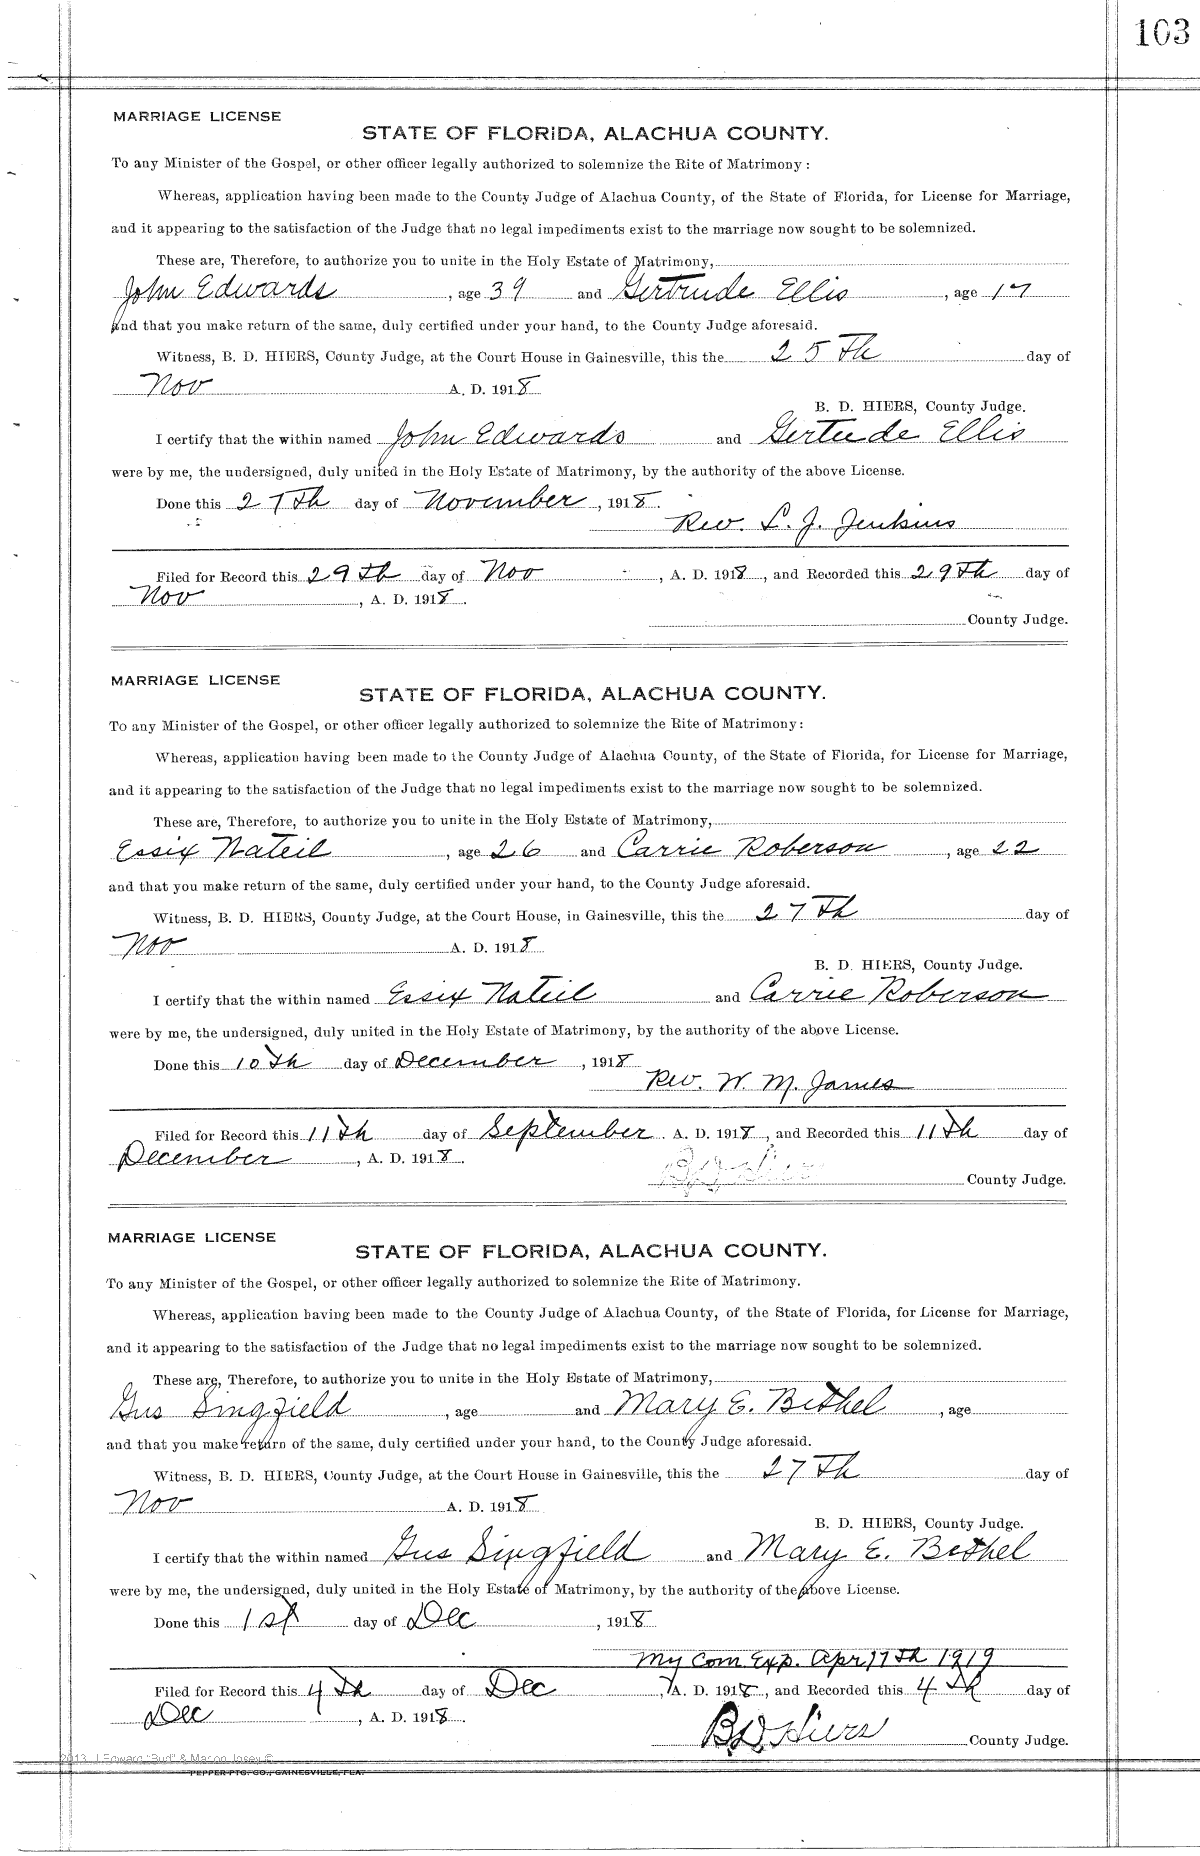 103
MARRIAGE LICENSE
STATE OF FLORIDA, ALACHUA COUNTY.
To any Minister of the Gospel, or other officer legally authorized to solemnize the Rite of Matrimony :
Whereas, application having been made to the County Judge of Alachua County, of the State of Florida, for License for Marriage,
and it appearing to the satisfaction of the Judge that no legal impediments exist to the marriage now sought to be solemnized.
These are, Therefore, to authorize you to unite in the Holy Estate of Matrimony,
John Edwards , age 39 and Gertrude Ellis , age 17
and that you make return of the same, duly certified under your hand, to the County Judge aforesaid.
Witness, B. D. HIERS, County Judge, at the Court House in Gainesville, this the 25Th day of
Nov A. D. 1918
B. D. HIERS, County Judge.
I certify that the within named John Edwards and Gertrude Ellis
were by me, the undersigned, duly united in the Holy Estate of Matrimony, by the authority of the above License.
Done this 27Th day of November , 1918.
Rev. L. J. Jenkins
Filed for Record this 29Th day of Nov , A. D. 1918 , and Recorded this 29Th day of
Nov , A. D. 1918.
County Judge.
MARRIAGE LICENSE
STATE OF FLORIDA, ALACHUA COUNTY.
To any Minister of the Gospel, or other officer legally authorized to solemnize the Rite of Matrimony:
Whereas, application having been made to the County Judge of Alachua County, of the State of Florida, for License for Marriage,
and it appearing to the satisfaction of the Judge that no legal impediments exist to the marriage now sought to be solemnized.
These are, Therefore, to authorize you to unite in the Holy Estate of Matrimony,
Essix Nateil , age 26 and Carrie Roberson , age 22
and that you make return of the same, duly certified under your hand, to the County Judge aforesaid.
Witness, B. D. HIERS, County Judge, at the Court House, in Gainesville, this the 27Th day of
Nov A. D. 1918
B. D. HIERS, County Judge.
I certify that the within named Essix Nateil and Carrie Roberson
were by me, the undersigned, duly united in the Holy Estate of Matrimony, by the authority of the above License.
Done this 10Th day of December , 1918
Rev. W. M. James
Filed for Record this 11Th day of September . A. D. 1918 , and Recorded this 11Th day of
December , A. D. 1918.
B D Hiers County Judge.
MARRIAGE LICENSE
STATE OF FLORIDA, ALACHUA COUNTY.
To any Minister of the Gospel, or other officer legally authorized to solemnize the Rite of Matrimony.
Whereas, application having been made to the County Judge of Alachua County, of the State of Florida, for License for Marriage,
and it appearing to the satisfaction of the Judge that no legal impediments exist to the marriage now sought to be solemnized.
These are, Therefore, to authorize you to unite in the Holy Estate of Matrimony,
Gus Singfield , age and Mary E. Bethel , age
and that you make return of the same, duly certified under your hand, to the County Judge aforesaid.
Witness, B. D. HIERS, County Judge, at the Court House in Gainesville, this the 27Th day of
Nov A. D. 1918
B. D. HIERS, County Judge.
I certify that the within named Gus Singfield and Mary E. Bethel
were by me, the undersigned, duly united in the Holy Estate of Matrimony, by the authority of the above License.
Done this 1st day of Dec , 1918
My Com Exp. Apr 17Th 1919
Filed for Record this 4Th day of Dec , A. D. 1918 , and Recorded this 4Th day of
Dec , A. D. 1918.
B D Hiers County Judge.
2013 J Edward "Bud" & Marion Josey ©
PEPPER PTG. CO., GAINESVILLE, FLA.